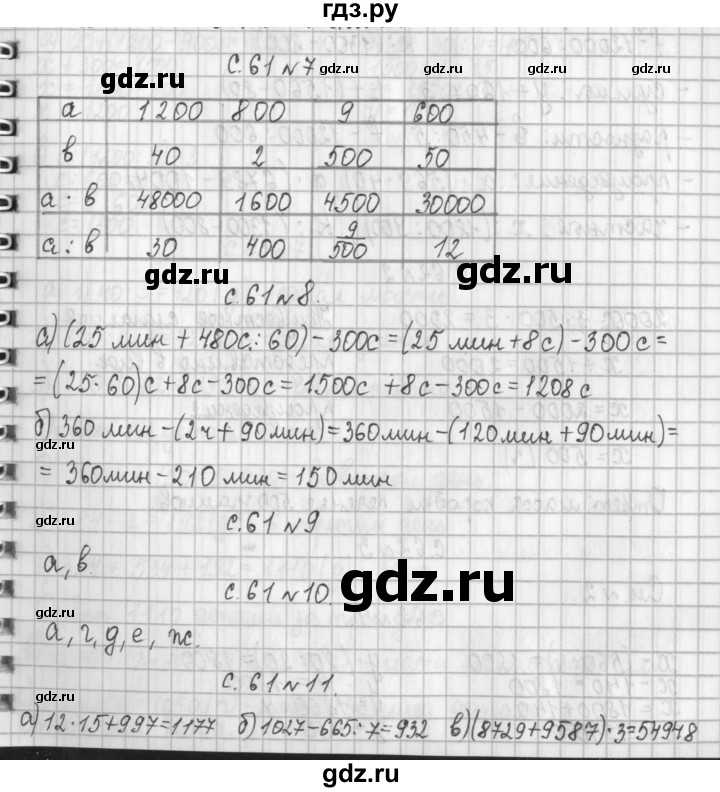 гдз.ру
с. 61 № 7
gdz.ru gdz.ru gdz.ru
а 1200 800 9 600
в 40 2 500 50
а · в 48000 1600 4500 30000
а : в 30 400 9/500 12
gdz.ru gdz.ru
с. 61 № 8.
а) (25 мин + 480с : 60) – 300с = (25 мин + 8с) – 300с =
= (25 · 60)с + 8с – 300с = 1500с + 8с – 300с = 1208с
gdz.ru gdz.ru
б) 360 мин – (2ч + 90мин) = 360мин – (120мин + 90мин) =
= 360мин – 210 мин = 150 мин
gdz.ru
с. 61 № 9
а, в.
gdz.ru
с. 61 № 10.
gdz.ru
а, г, д, е, ж.
с. 61 № 11.
gdz.ru gdz.ru
а) 12 · 15 + 997 = 1177 б) 1027 – 665 : 7 = 932 в) (8729 + 9587) · 3 = 54948
gdz.ru